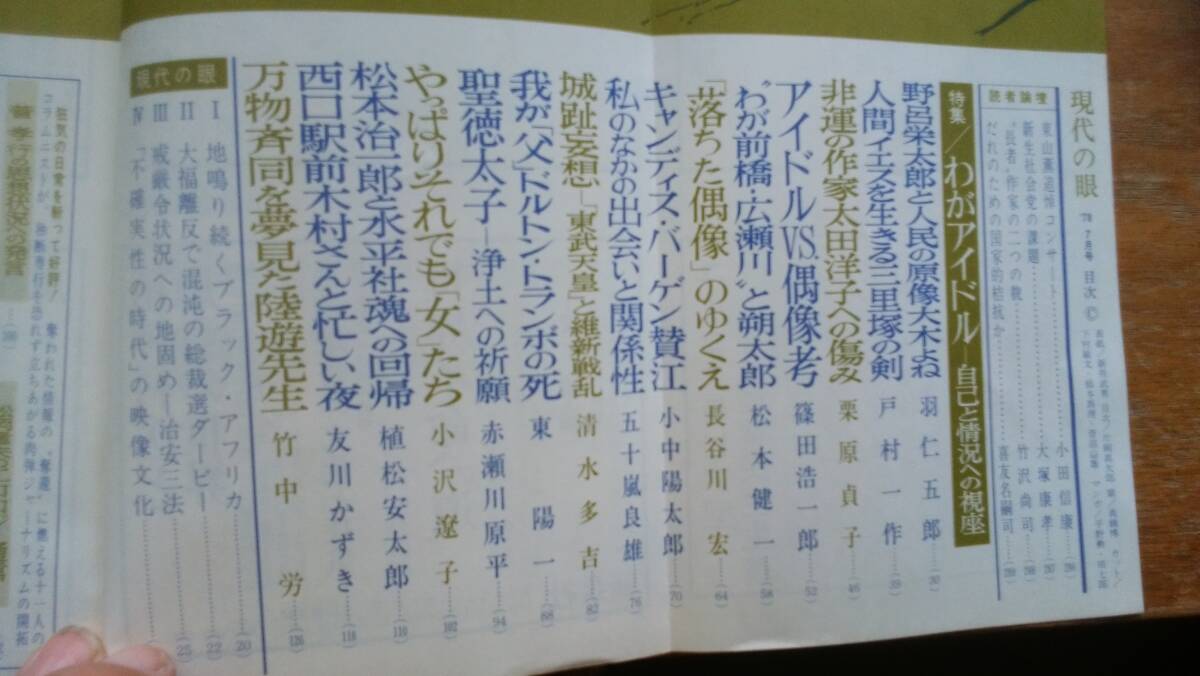 現代の眼 '78 7月号 目次 ©
読者論壇
新生社会党の課題 大塚康孝
"長者"作家の二つの貌 竹沢尚司
だれのための国家的拮抗か 喜友名嗣司
特集/わがアイドル―自己と情況への視座
野呂栄太郎と人民の原像大木よね 羽仁五郎 (30)
人間イエスを生きる三里塚の剣 戸村一作 (39)
非運の作家太田洋子への傷み 栗原貞子 (46)
アイドルVS.偶像考 篠田浩一郎 (52)
"わが前橋・広瀬川"と朔太郎 松本健一 (58)
「落ちた偶像」のゆくえ 長谷川宏 (64)
キャンディス・バーゲン賛江 小中陽太郎 (70)
私のなかの出会いと関係性 五十嵐良雄 (76)
城趾妄想―「東武天皇」と維新戦乱 清水多吉 (82)
我が「父」ドルトン・トランボの死 東陽一 (88)
聖徳太子―浄土への祈願 赤瀬川原平 (94)
やっぱりそれでも「女」たち 小沢遼子 (102)
松本治一郎と水平社魂への回帰 植松安太郎 (110)
西口駅前木村さんと忙しい夜 友川かずき (118)
万物斉同を夢見た陸遊先生 竹中労 (126)
現代の眼
Ⅰ 地鳴り続くブラック・アフリカ (20)
Ⅱ 大福離反で混沌の総裁選ダービー (22)
Ⅲ 戒厳令状況への地固め―治安三法 (25)
Ⅳ 「不確実性の時代」の映像文化
狂気の日常を斬って好評! 奪われた情報の"奪還"に燃える十一人の
コラムニストが、独断専行を恐れず立ちあがる肉弾ジャーナリズムの開拓
菅孝行の思想状況への発言